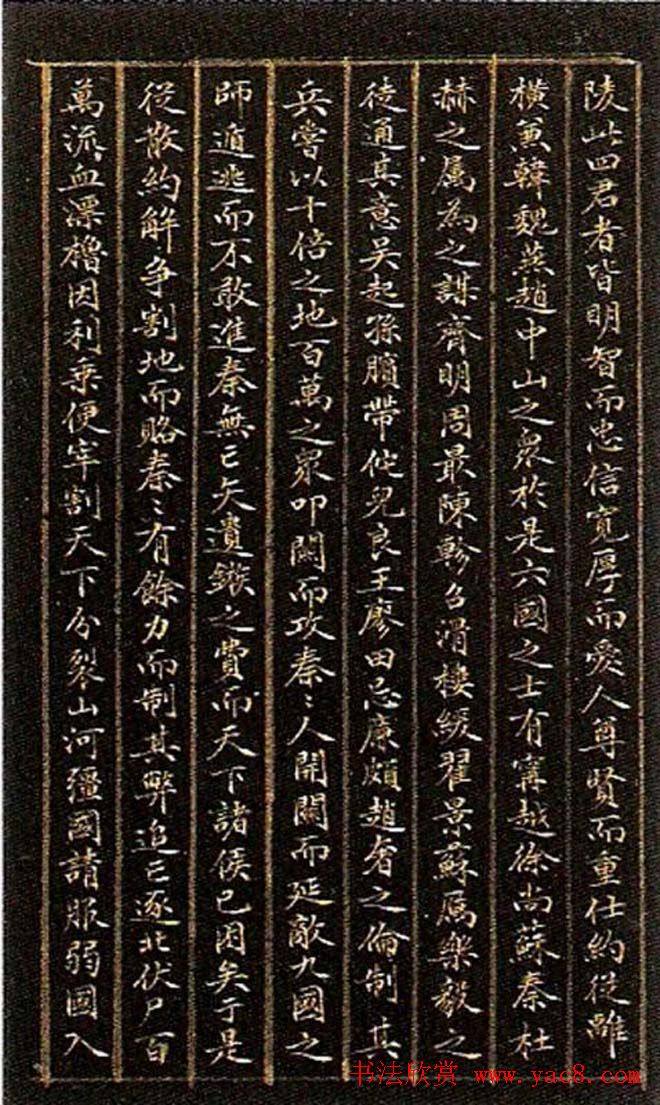 陵此四君者皆明智而忠信寬厚而愛人尊賢而重仕約從離
橫兼韓魏燕趙中山之衆於是六國之士有甯越徐尚蘇秦杜
赫之屬為之謀齊明周最陳軫召滑樓緩翟景蘇厲樂毅之
徒通其意吴起孫臏帶佗兒良王廖田忌廉頗趙奢之倫制其
兵嘗以十倍之地百萬之衆叩關而攻秦〻人開關而延敵九國之
師遁逃而不敢進秦無亡矢遺鏃之費而天下諸侯已困矣于是
從散約解争割地而賂秦〻有餘力而制其弊追亡逐北伏尸百
萬流血漂櫓因利乗便宰割天下分裂山河彊國請服弱國入
书法欣赏 www.yac8.com